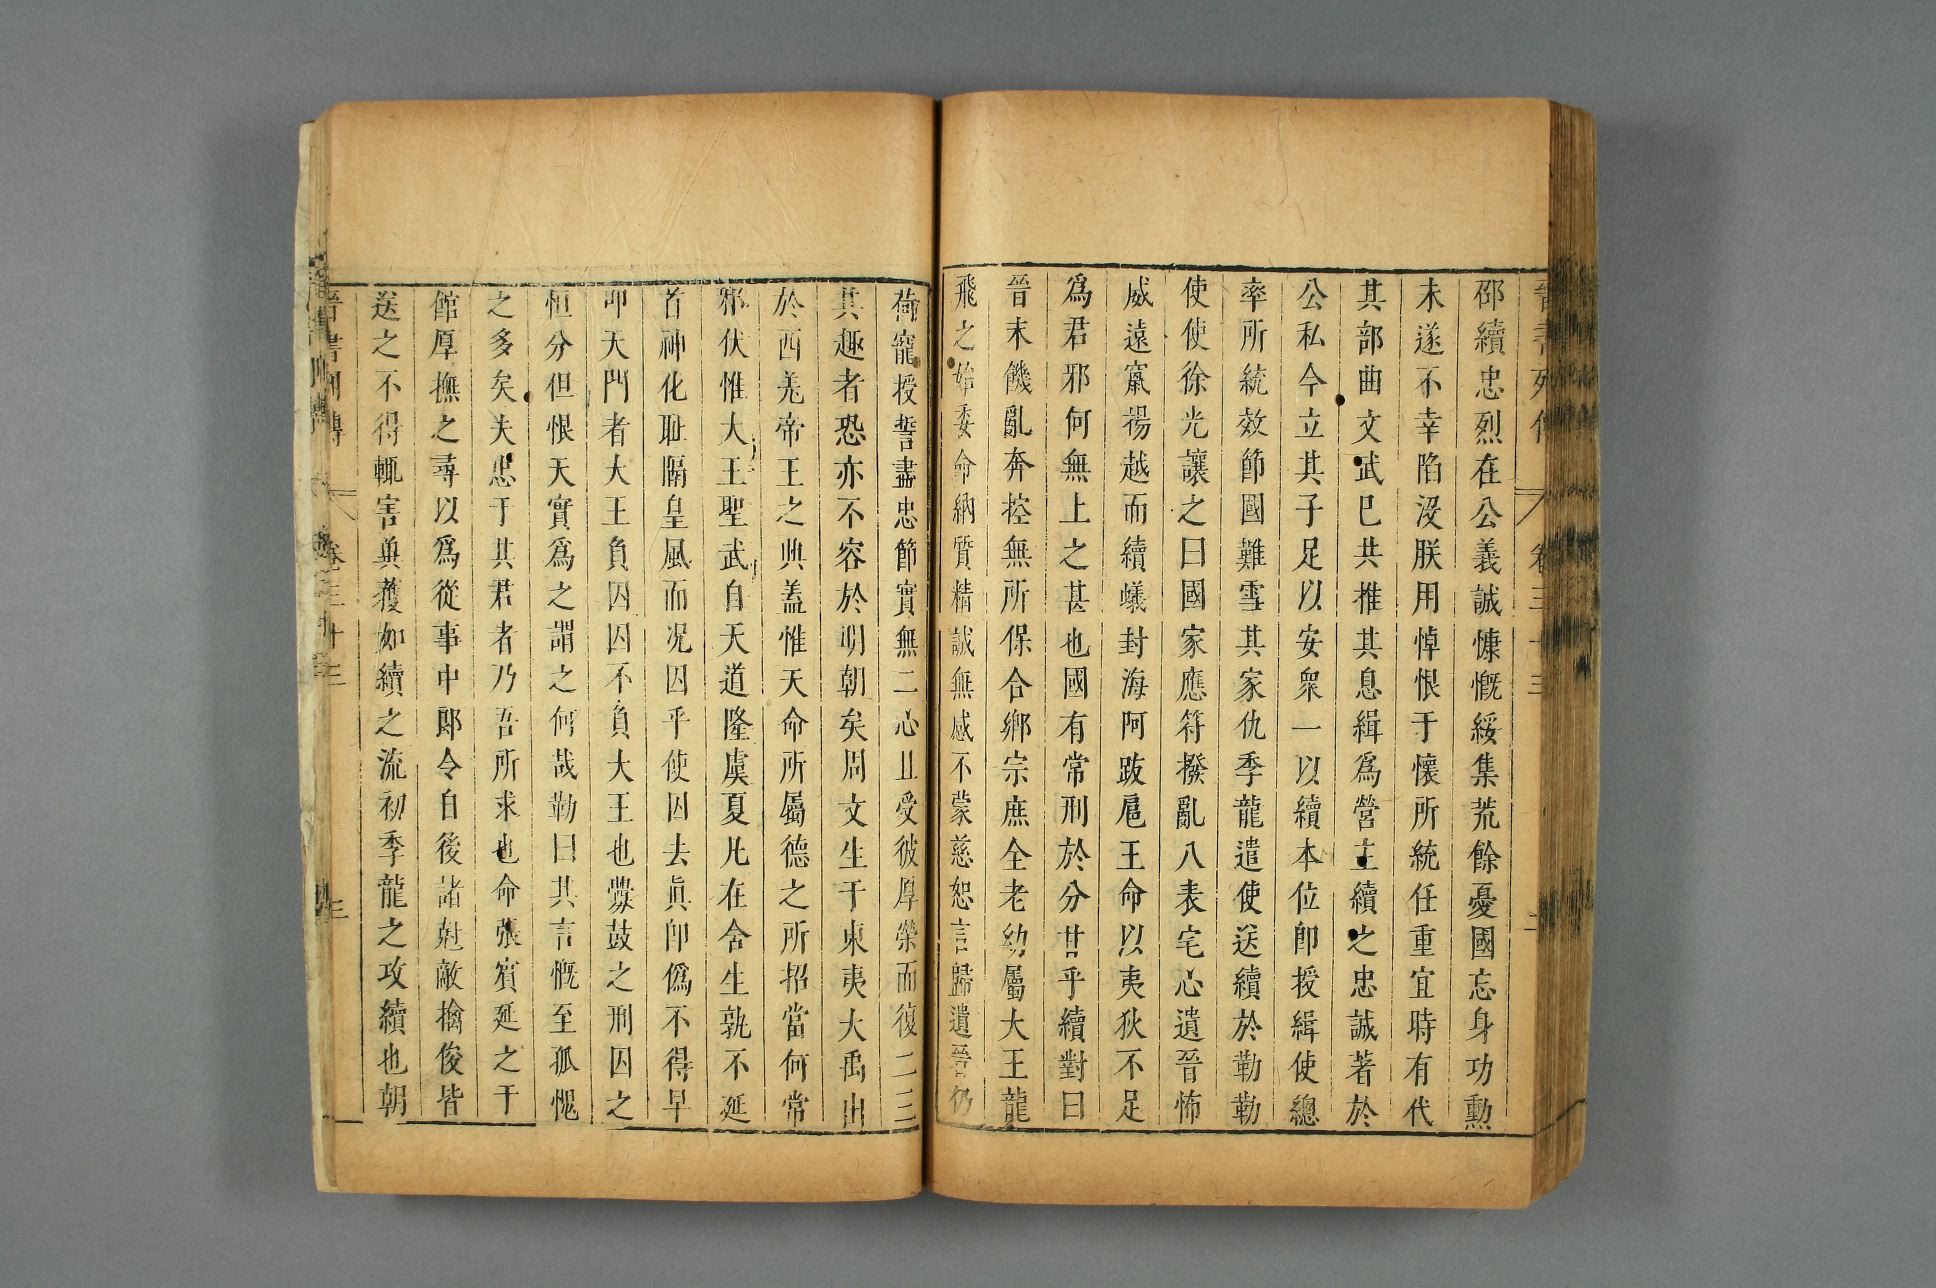 晉書列傳 卷三十三 二
邵續忠烈在公義誠慷慨綏集荒餘憂國忘身功勳
未遂不幸陷沒朕用悼恨于懷所統任重宜時有代
其部曲文武已共推其息緝爲營主續之忠誠著於
公私今立其子足以安衆一以續本位卽授緝使總
率所統效節國難雪其家仇季龍遣使送續於勒勒
使使徐光讓之曰國家應符撥亂八表宅心遺晉怖
威遠竄揚越而續蟻封海阿跋扈王命以夷狄不足
爲君邪何無上之甚也國有常刑於分甘乎續對曰
晉末饑亂奔控無所保合鄉宗庶全老幼屬大王龍
飛之始委命納質精誠無感不蒙慈恕言歸遺晉仍
荷寵授誓盡忠節實無二心且受彼厚榮而復二三
其趣者恐亦不容於明朝矣周文生于東夷大禹出
於西羌帝王之興蓋惟天命所屬德之所招當何常
邪伏惟大王聖武自天道隆虞夏凡在含生孰不延
首神化耻隔皇風而况囚乎使囚去眞卽僞不得早
叩天門者大王負囚囚不負大王也釁鼓之刑囚之
恒分但恨天實爲之謂之何哉勒曰其言慨至孤愧
之多矣夫忠于其君者乃吾所求也命張賓延之于
館厚撫之尋以爲從事中郞令自後諸尅敵擒俊皆
送之不得輒害冀獲如續之流初季龍之攻續也朝
晉書列傳 卷三十三 三